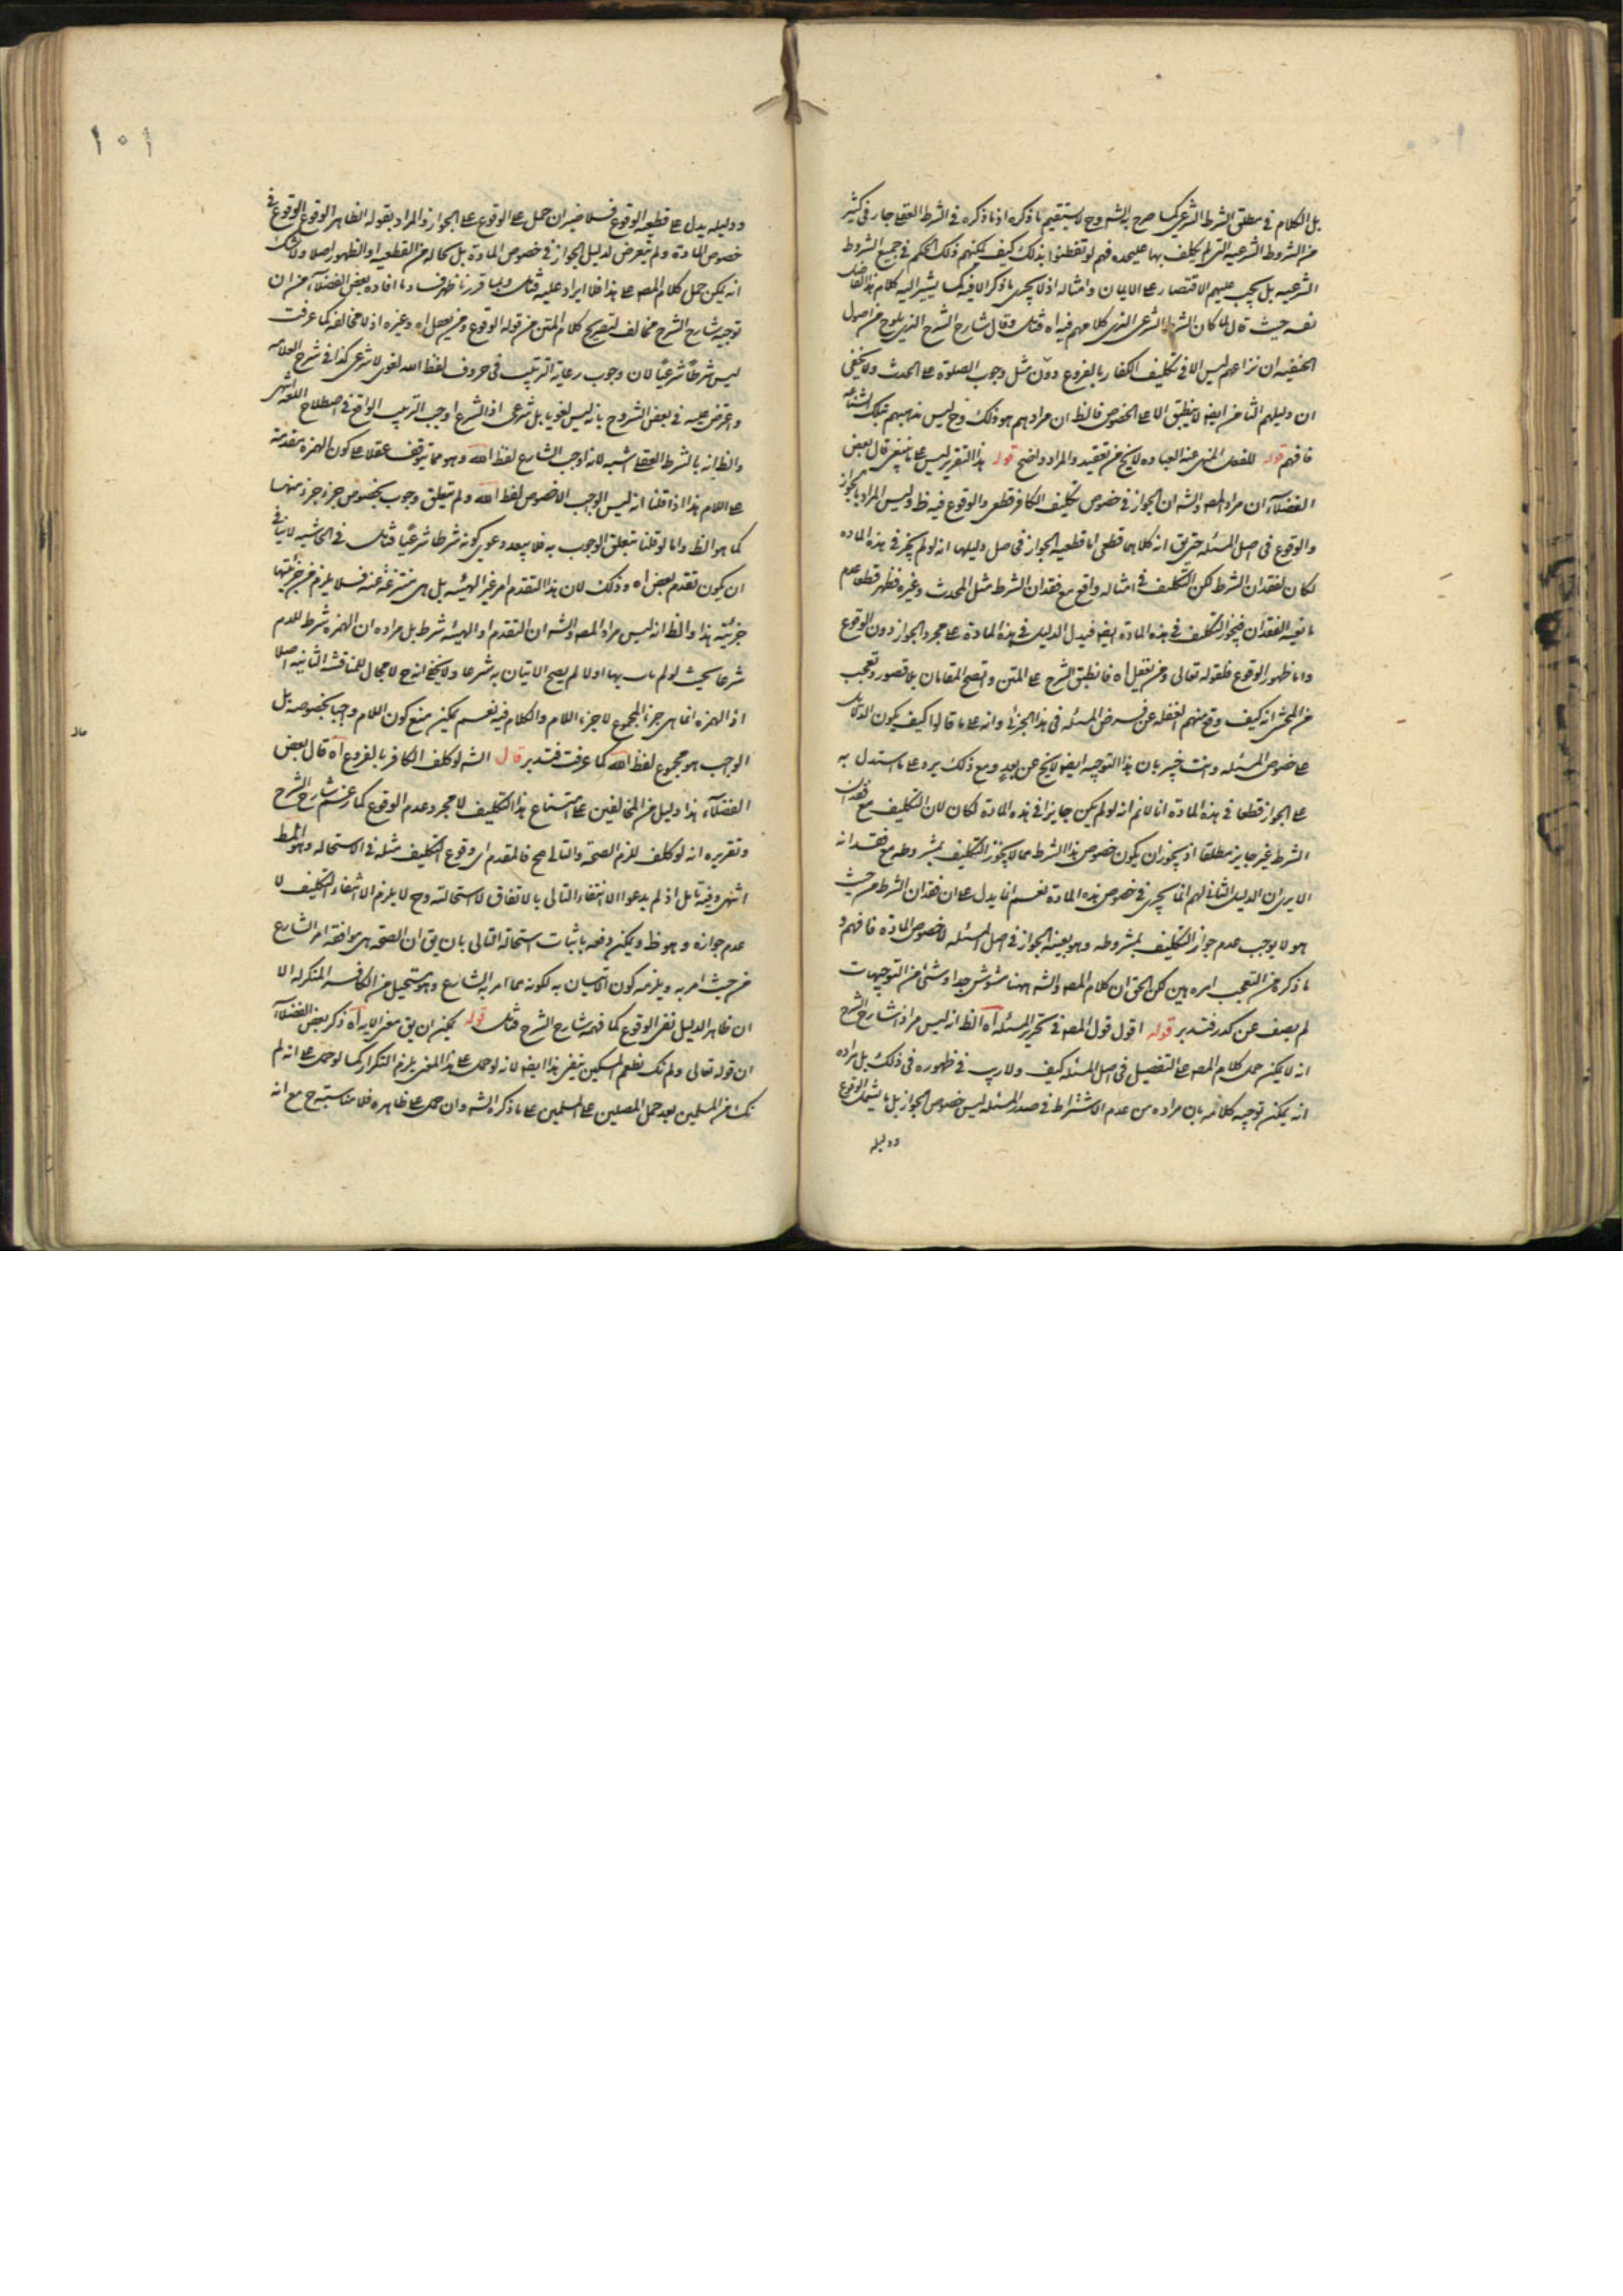 بل الكلام في مطلق الشرط الشرعي كما صرح به الشه وح لا يستقيم ما ذكره اذ ما ذكره في الشرط العقلي جار في كثير
من الشروط الشرعيه التي لم يكلف بها عليحده فهم لو تفطنوا بذلك كيف يمكنهم ذلك الحكم في جميع الشروط
الشرعيه بل يجب عليهم الاقتصار على الايمان وامثاله اذ لا يجرى ما ذكر الا فيه كما يشير اليه كلام هذا الفاضل
نفسه حيث قال لما كان الشرط الشرعى الذى كلامهم فيه اه فتأمل وقال شارح الشرح الذى يلوح من اصول
الحنفيه ان نزاعهم ليس الا في تكليف الكفار بالفروع دون مثل وجوب الصلوة على المحدث ولا يخفى
ان دليلهم الثانى ايضا لا ينطبق الا على الخصوص فالظ ان مرادهم هو ذلك وح ليس مذهبهم بتلك الشناعه
فافهم قوله للفعل المنهى عنه العباده لا يخ من تعقيد والمراد واضح قوله هذا التقرير ليس على ما ينبغى قال بعض
الفضلاء ان مراد المصه والشه ان الجواز في خصوص تكليف الكافر قطعى والوقوع فيه ظ وليس المراد بالجواز
والوقوع في اصل المسئله حتى يق انه كلاهما قطعى اما قطعيه الجواز في اصل دليلها انه لو لم يجز في هذه الماده
لكان لفقدان الشرط لكن التكليف في امثاله واقع مع فقدان الشرط مثل المحدث وغيره فظهر قطعا عدم
مانعيه الفقدان فيجوز التكليف في هذه المادة ايضا فيدل الدليل في هذه المادة على مجرد الجواز دون الوقوع
واما ظهور الوقوع فلقوله تعالى ومن يفعل اه فانطبق الشرح على المتن واتضح المقامان بلا قصور وتعجب
من المحشى انه كيف وقع منهم الغفله عن فرض المسئله في هذا الجزئى وانه على ما قالوا كيف يكون الدلائل
على خصوص المسئله وانت خبير بان هذا التوجيه ايضا لا يخ عن بعد ومع ذلك يرد على ما استدل به
على الجواز قطعا في هذه المادة انا لا نم انه لو لم يكن جايزا في هذه المادة لكان لان التكليف مع فقدان
الشرط غير جايز مطلقا اذ يجوز ان يكون خصوص هذا الشرط مما لا يجوز التكليف بمشروطه مع فقدانه
الا يرى ان الدليل الثانى لهم انما يجرى في خصوص هذه المادة نعم انما يدل على ان فقدان الشرط من حيث
هو لا يوجب عدم جواز التكليف بمشروطه وهو بعينه الجواز في اصل المسئله لا خصوص المادة فافهم و
ما ذكره من التعجب امره هين لكن الحق ان كلام المصه والشه ههنا مشوش جدا وشئ من التوجيهات
لم يصف عن كدر فتدبر قوله اقول قول المصه في تحرير المسئله اه الظ انه ليس مراد شارح الشرح
انه لا يمكن حمل كلام المصه على التفصيل في اصل المسئله كيف ولا ريب في ظهوره في ذلك بل مراده
انه يمكن توجيه كلامه بان مراده من عدم الاشتراط في صدر المسئله ليس خصوص الجواز بل ما يشمل الوقوع
ودليله
١٠١
ودليله يدل على قطعيه الوقوع فلا ضير ان حمل على الوقوع على الجواز والمراد بقوله الظاهر الوقوع الوقوع في
خصوص المادة ولم يتعرض لدليل الجواز في خصوص المادة بل بحاله من القطعيه او الظهور اصلا ولا شك
انه يمكن حمل كلام المصه على هذا فلا ايراد عليه فتأمل وبما قررنا ظهر فساد ما افاده بعض الفضلاء من ان
توجيه شارح الشرح مخالف لتصريح كلام المتن من قوله الوقوع ومن يفعل اه وغيره اذ لا مخالفه كما عرفت
ليس شرطا شرعيا لان وجوب رعاية الترتيب في حروف لفظ الله لغوى لا شرعى كذا في شرح العلامه
واعترض عليه في بعض الشروح بانه ليس لغويا بل شرعى اذ الشرع اوجب الترتيب الواقع في اصطلاح اللغه انتهى
والظ انه بالشرط العقلى اشبه لانه اوجب الشارع لفظ الله وهو مما يتوقف عقلا على كون الهمزه مقدمة
على اللام هذا اذا قلنا انه ليس الواجب الا خصوص لفظ الله ولم يتعلق وجوب بخصوص جزء جزء منها
كما هو الظ واما لو قلنا بتعلق الوجوب به فلا يبعد دعوى كونه شرطا شرعيا فتأمل في الحاشيه لا ينافى
ان يكون تقدم بعض اه وذلك لان هذا التقدم امر غير الهيئه بل هى منتزعة عنه فلا يلزم من جزئيتها
جزئيته هذا والظ انه ليس مراد المصه والشه ان التقدم او الهيئه شرط بل مراده ان الهمزه شرط للام
شرعا بحيث لو لم يات بها اولا لم يصح الاتيان به شرعا ولا يخفى انه ح لا مجال للمناقشه الثانيه اصلا
اذ الهمزه انما هى جزء المجموع لا جزء اللام والكلام فيه نعم يمكن منع كون اللام واجبا بخصوصه بل
الواجب هو مجموع لفظ الله كما عرفت فتدبر قال الشه لو كلف الكافر بالفروع اه قال بعض
الفضلاء هذا دليل من المخالفين على امتناع هذا التكليف لا مجرد عدم الوقوع كما زعم شارح الشرح
وتقريره انه لو كلف للزم الصحة والتالى مح فالمقدم اى وقوع التكليف مثله في الاستحاله وهو المط
انتهى وفيه تأمل اذ لم يدعوا الا انتفاء التالى بالاتفاق لا استحالته وح لا يلزم الا انتفاء التكليف لا
عدم جوازه وهو ظ ويمكن دفعه باثبات استحالة التالى بان يق ان الصحه هى موافقه امر الشارع
من حيث امر به ويلزمه كون الاتيان به لكونه مما امر به الشارع وهو مستحيل من الكافر المنكر له الا
ان ظاهر الدليل نفى الوقوع كما فهمه شارح الشرح فتأمل قوله يمكن ان يق معنى الايه اه ذكر بعض الفضلاء
ان قوله تعالى ولم نك نطعم المسكين ينفى هذا ايضا لانه لو حمل على هذا المعنى يلزم التكرار كما لو حمل على انه لم
نك من المسلمين بعد حمل المصلين على المسلمين على ما ذكره الشه وان حمل على ظاهره فلا مناسبة ح مع انه